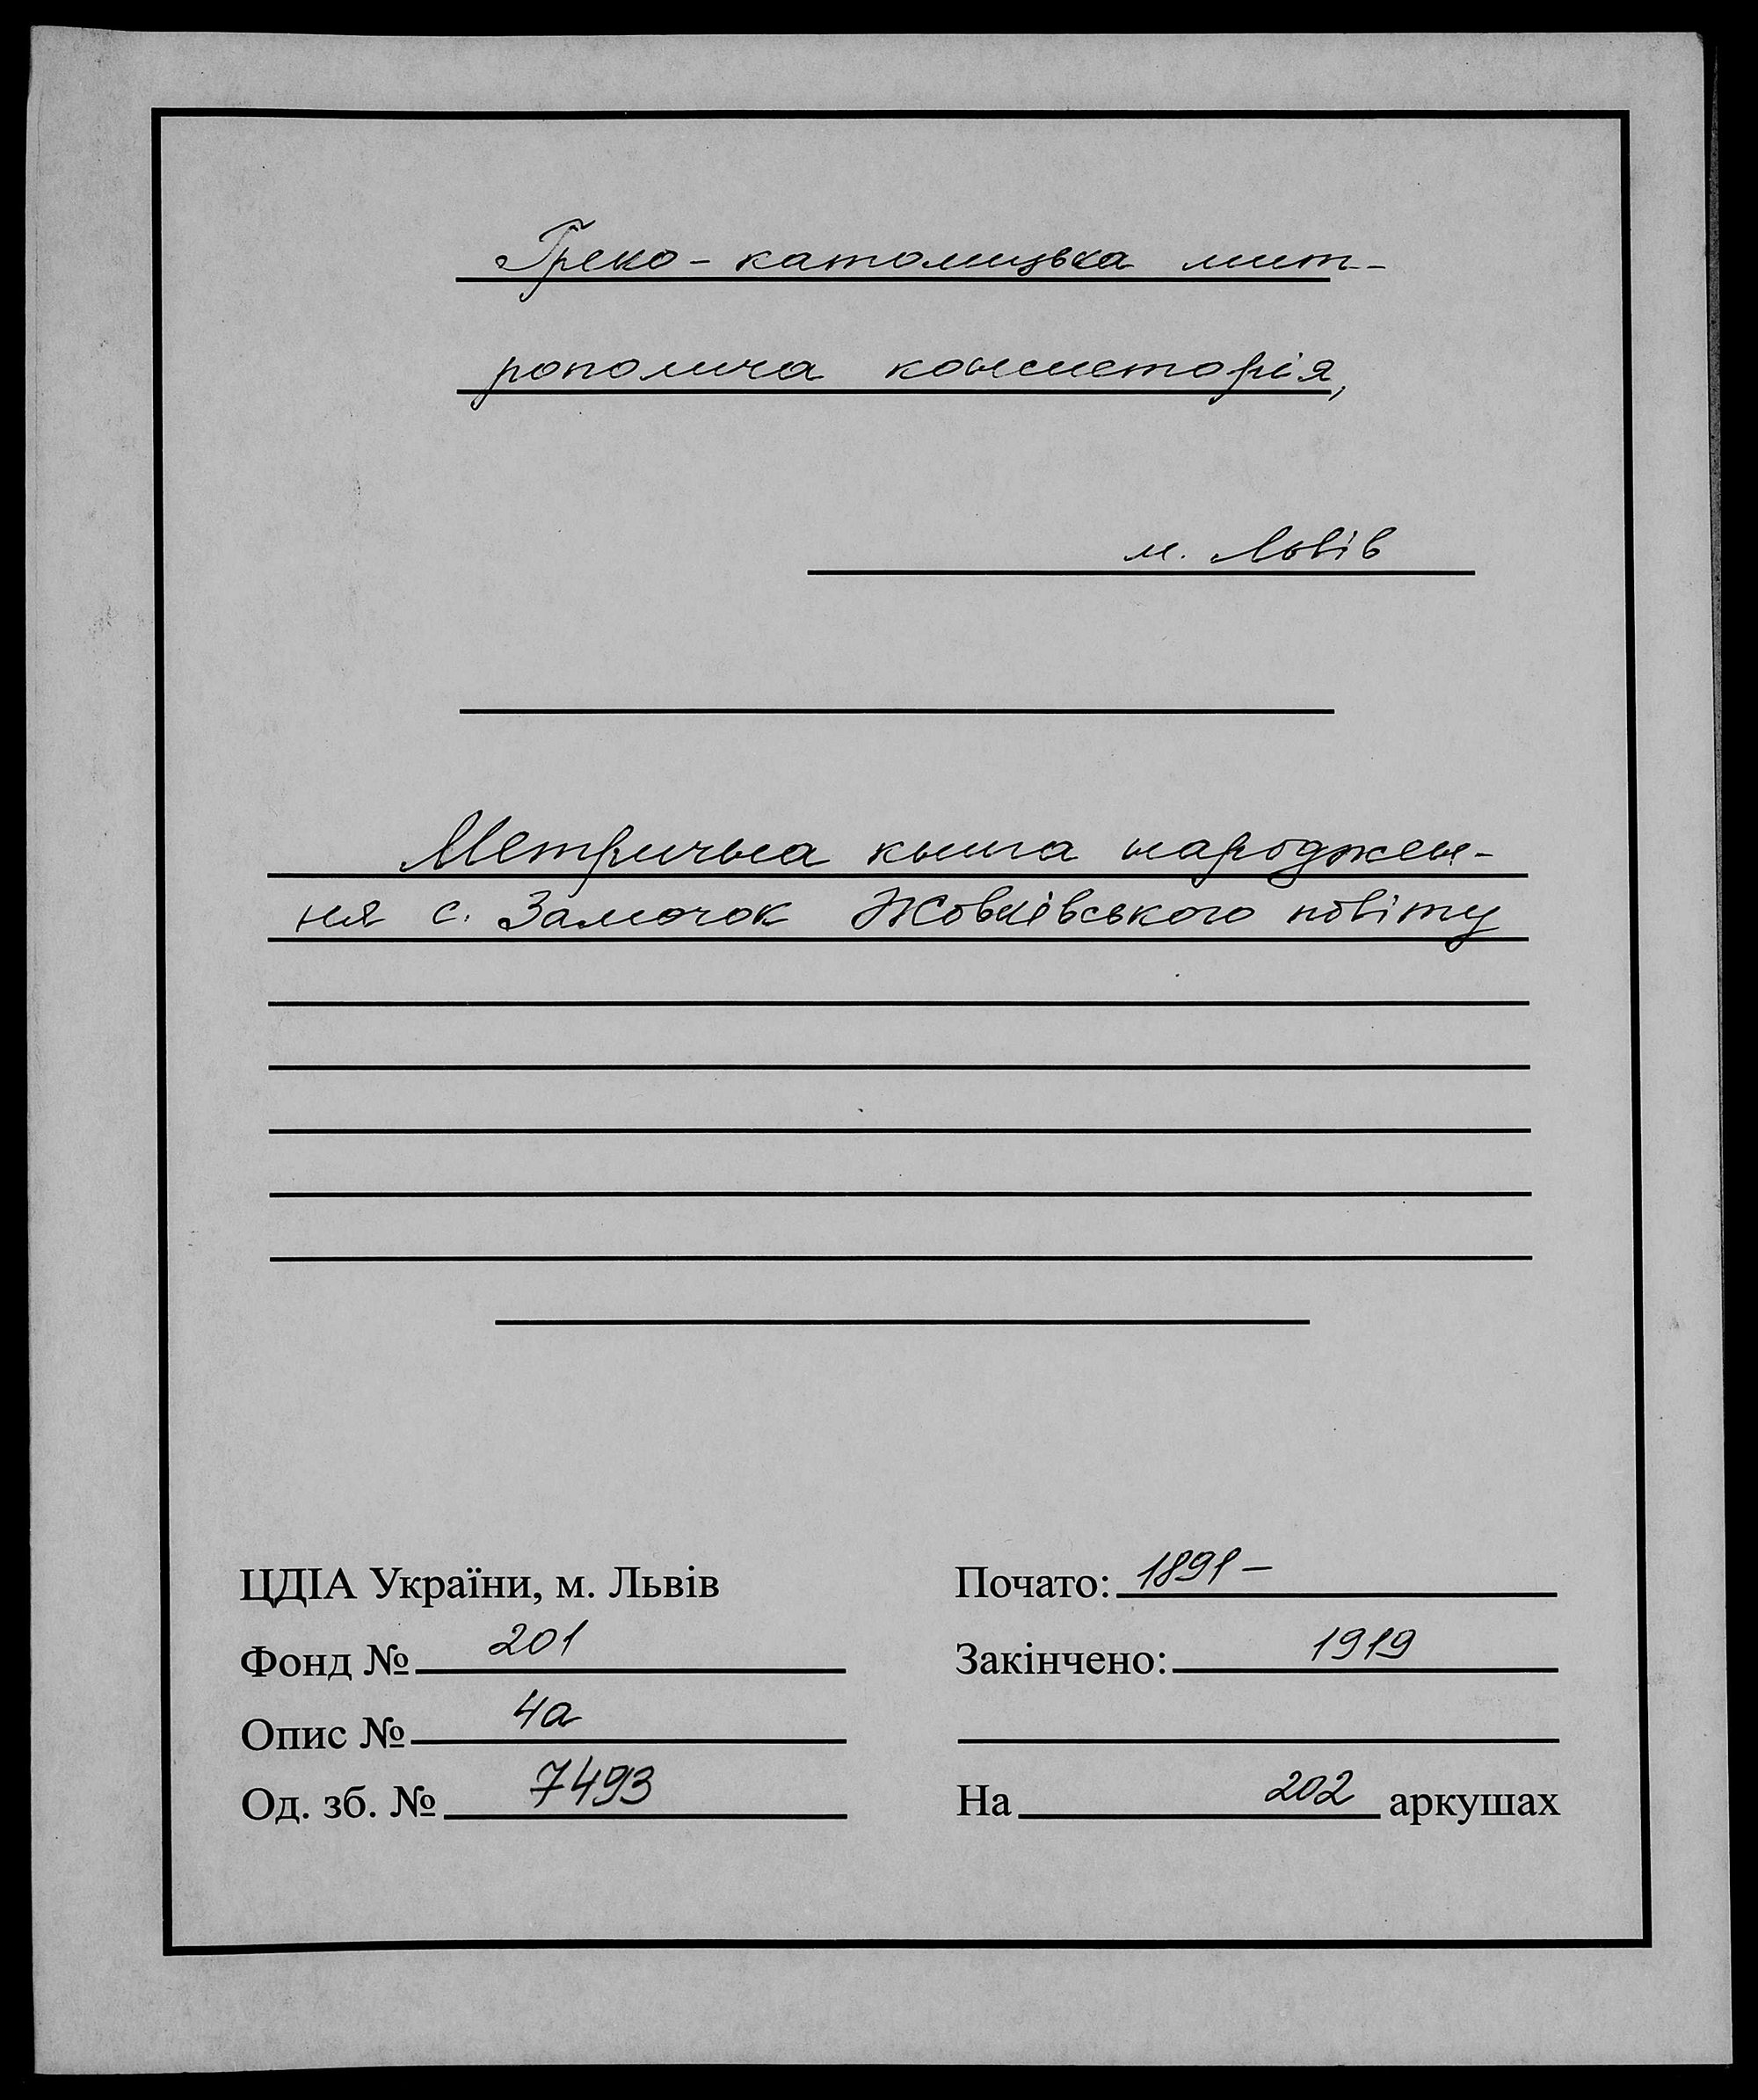 Греко-католицька мит-
рополича консисторія,
м. Львів
Метрична книга народжен-
ня с. Замочок Жовківського повіту
ЦДІА України, м. Львів
Фонд № 201
Опис № 4а
Од. зб. № 7493
Почато: 1891-
Закінчено: 1919
На 202 аркушах